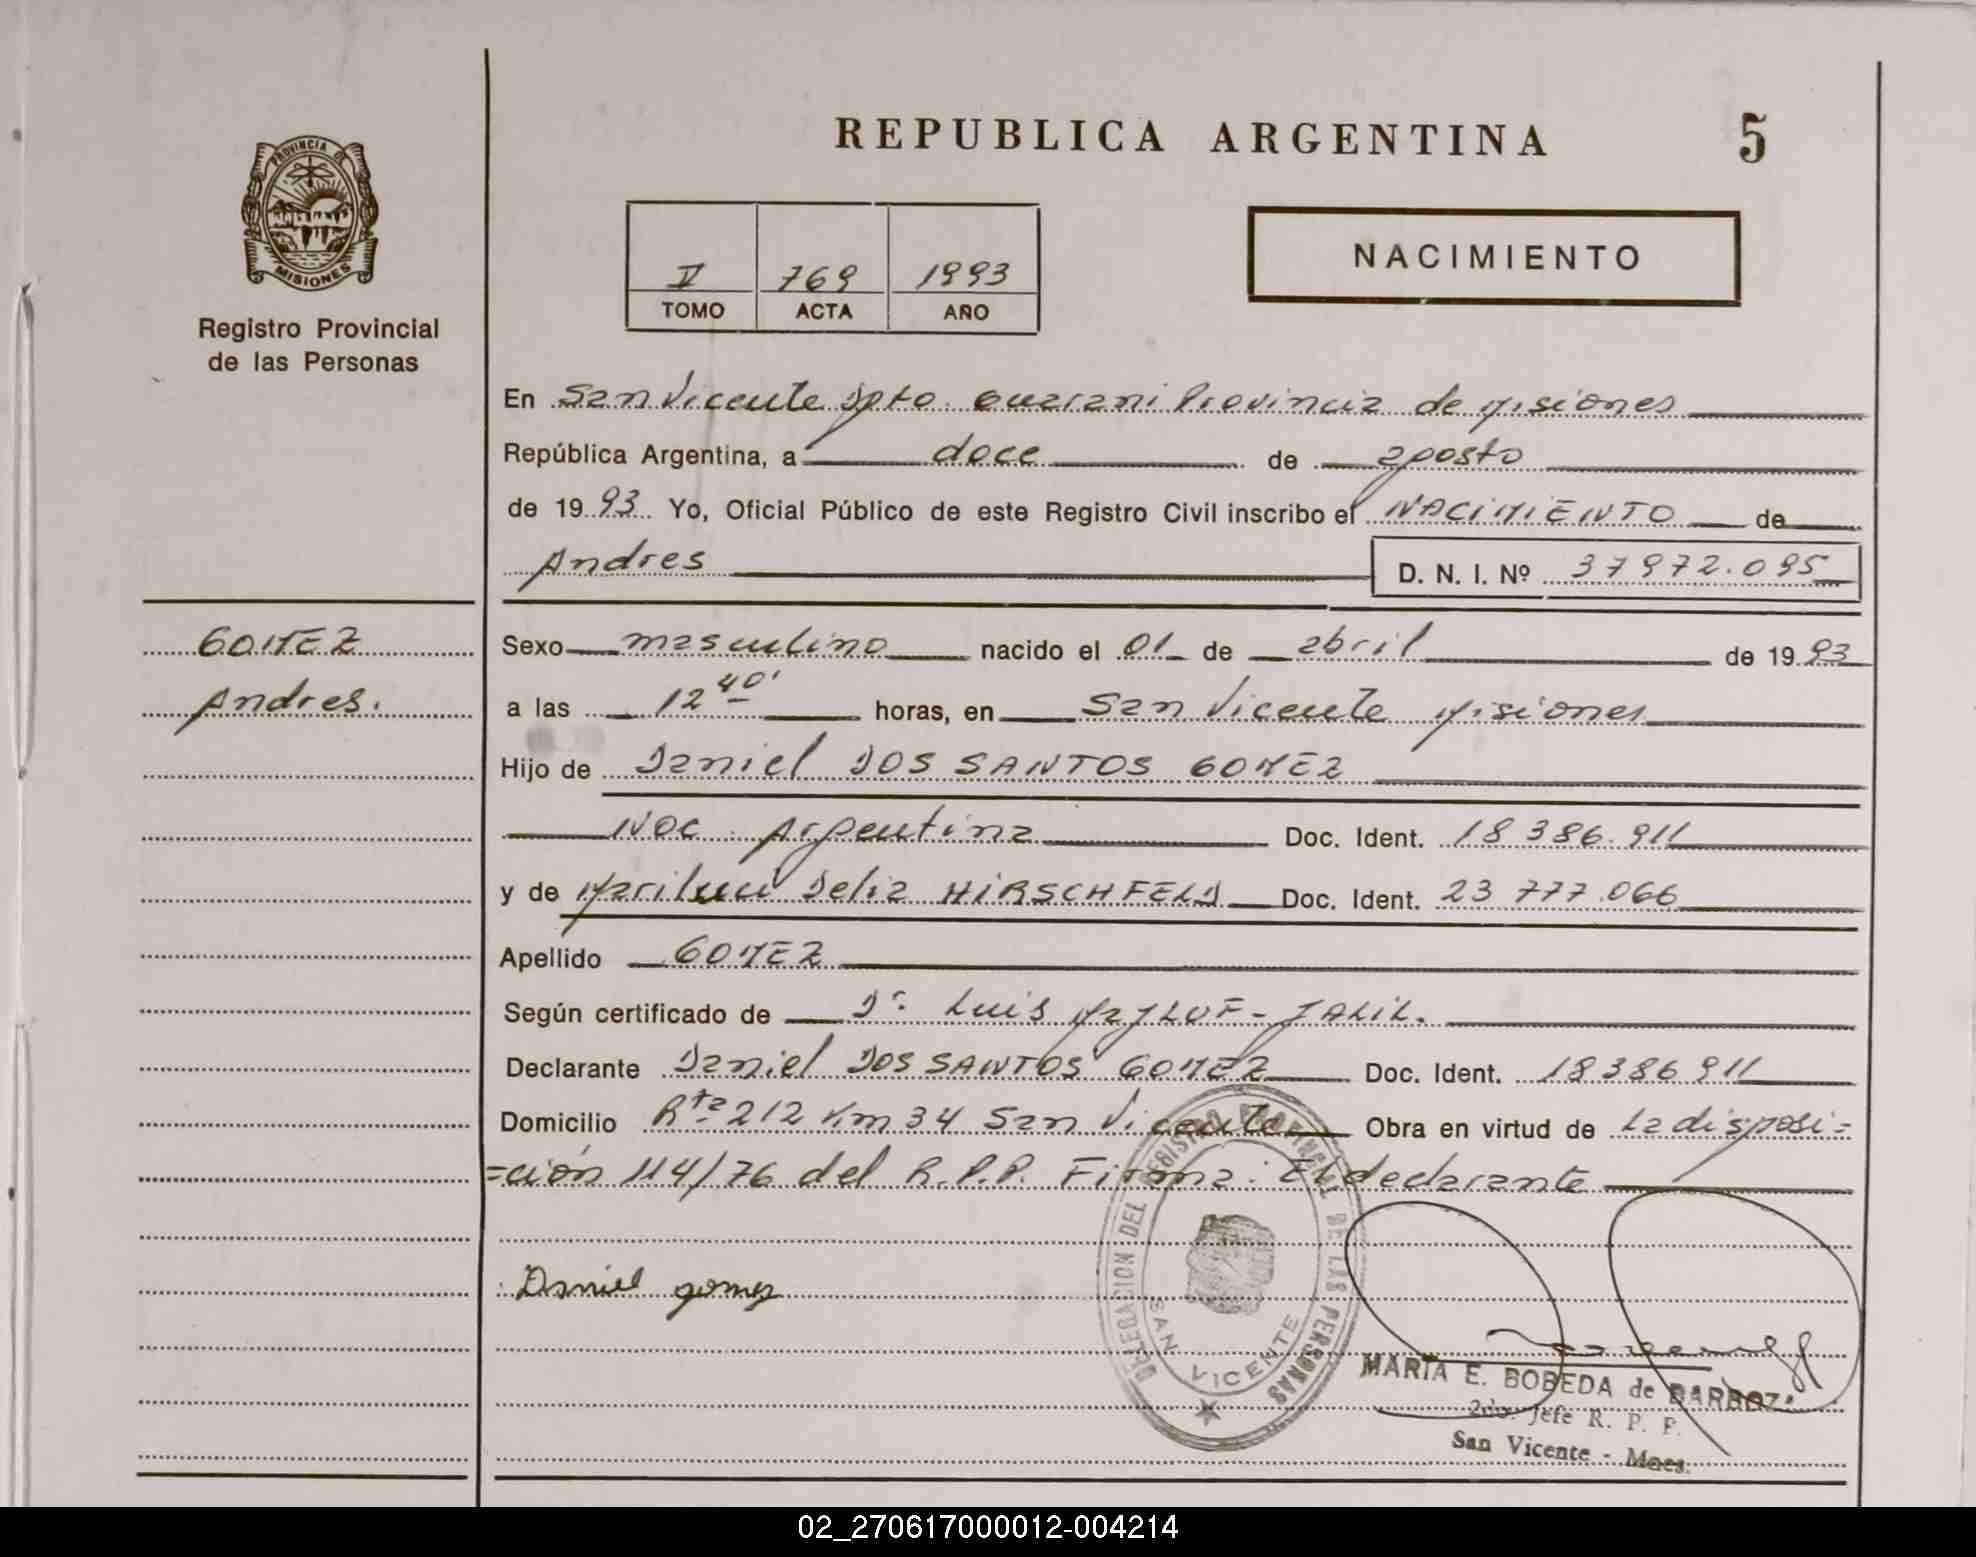 REPUBLICA ARGENTINA
5
PROVINCIA DE
MISIONES
Registro Provincial
de las Personas
V 769 1993
TOMO ACTA AÑO
NACIMIENTO
En San Vicente Dpto. Guarani Provincia de Misiones
República Argentina, a doce de agosto
de 1993 Yo, Oficial Público de este Registro Civil inscribo el NACIMIENTO de
Andres D. N. I. Nº 37972.095
GOMEZ
Andres.
Sexo masculino nacido el 01 de abril de 1993
a las 12 40' horas, en San Vicente Misiones
Hijo de Daniel DOS SANTOS GOMEZ
Nac. Argentina Doc. Ident. 18 386.911
y de Delia HIRSCHFELD Doc. Ident. 23 777.066
Apellido GOMEZ
Según certificado de Dr. Luis JALIL.
Declarante Daniel DOS SANTOS GOMEZ Doc. Ident. 18386911
Domicilio Rta 212 Km 34 San Vicente Obra en virtud de La disposi=
=ción 114/76 del R.P.P. Firma: El declarante
Daniel gomez
DELEGACION DEL REGISTRO PROVINCIAL DE LAS PERSONAS
SAN VICENTE
MARIA E. BOBEDA de BARBOZA
2do. Jefe R. P. P.
San Vicente - Mnes.
02_270617000012-004214